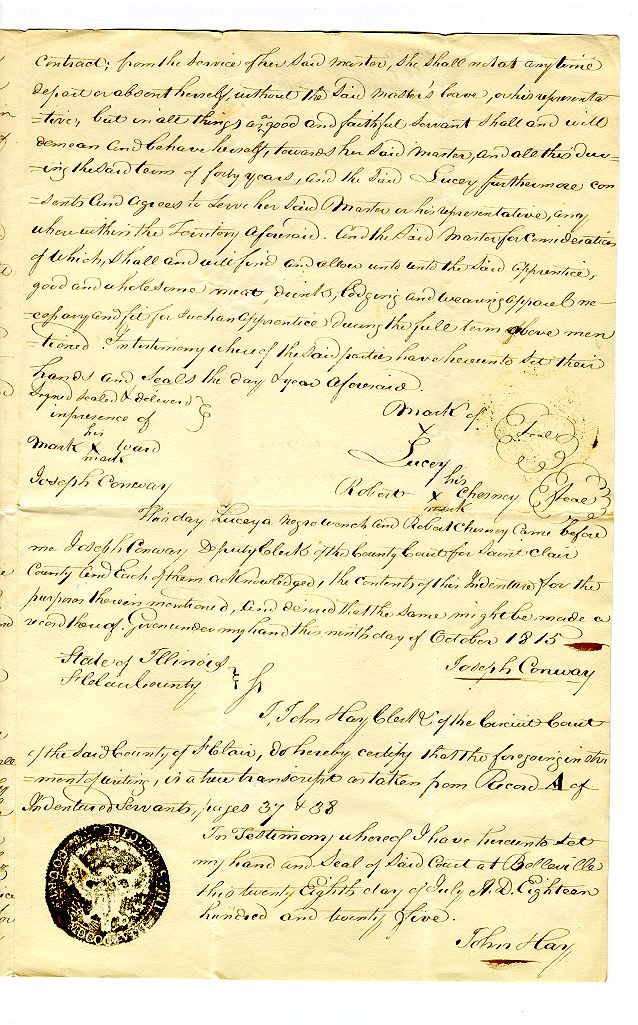 contract; from the service of her said master, she shall not at any time
depart or absent herself, without the said master's leave, or his representa
=tive; but in all things as a good and faithful servant shall and will
demean and behave herself, towards her said Master, and all this dur-
=ing the said term of forty years, and the said Lucey furthermore con
=sents and agrees to serve her said Master or his representative, any
where within the Territory aforesaid. And the said Master for consideration
of which, shall and will find and allow unto unto the said apprentice,
good and wholesome meat, drink, lodging and wearing apparel ne-
=cessary and fit for such an Apprentice during the full term above men
=tioned. In testimony whereof the said parties have hereunto set their
hands and seals the day & year aforesaid.
Signed sealed & delivered
in presence of
his
Mark x Ward
mark
Joseph Conway
Mark of
x
Lucey
Seal
his
Robert x Chesney
mark
Seal
This day Lucey a negro wench and Robert Chesney came before
me Joseph Conway Deputy Clerk of the County Court for Saint Clair
County and Each of them acknowledged, the contents of this Indenture for the
purposes therein mentioned, and desired that the same might be made a
record thereof. Given under my hand this ninth day of October 1815
Joseph Conway
State of Illinois
St Clair County
I, John Hay Clerk &c of the Circuit Court
of the said County of St Clair, do hereby certify that the foregoing instru
=ment of writing, is a true transcript as taken from Record A of
Indentured Servants, pages 37 & 38
In Testimony whereof I have hereunto set
my hand and Seal of said Court at Belleville
this twenty Eighth day of July A.D. Eighteen
hundred and twenty five.
John Hay